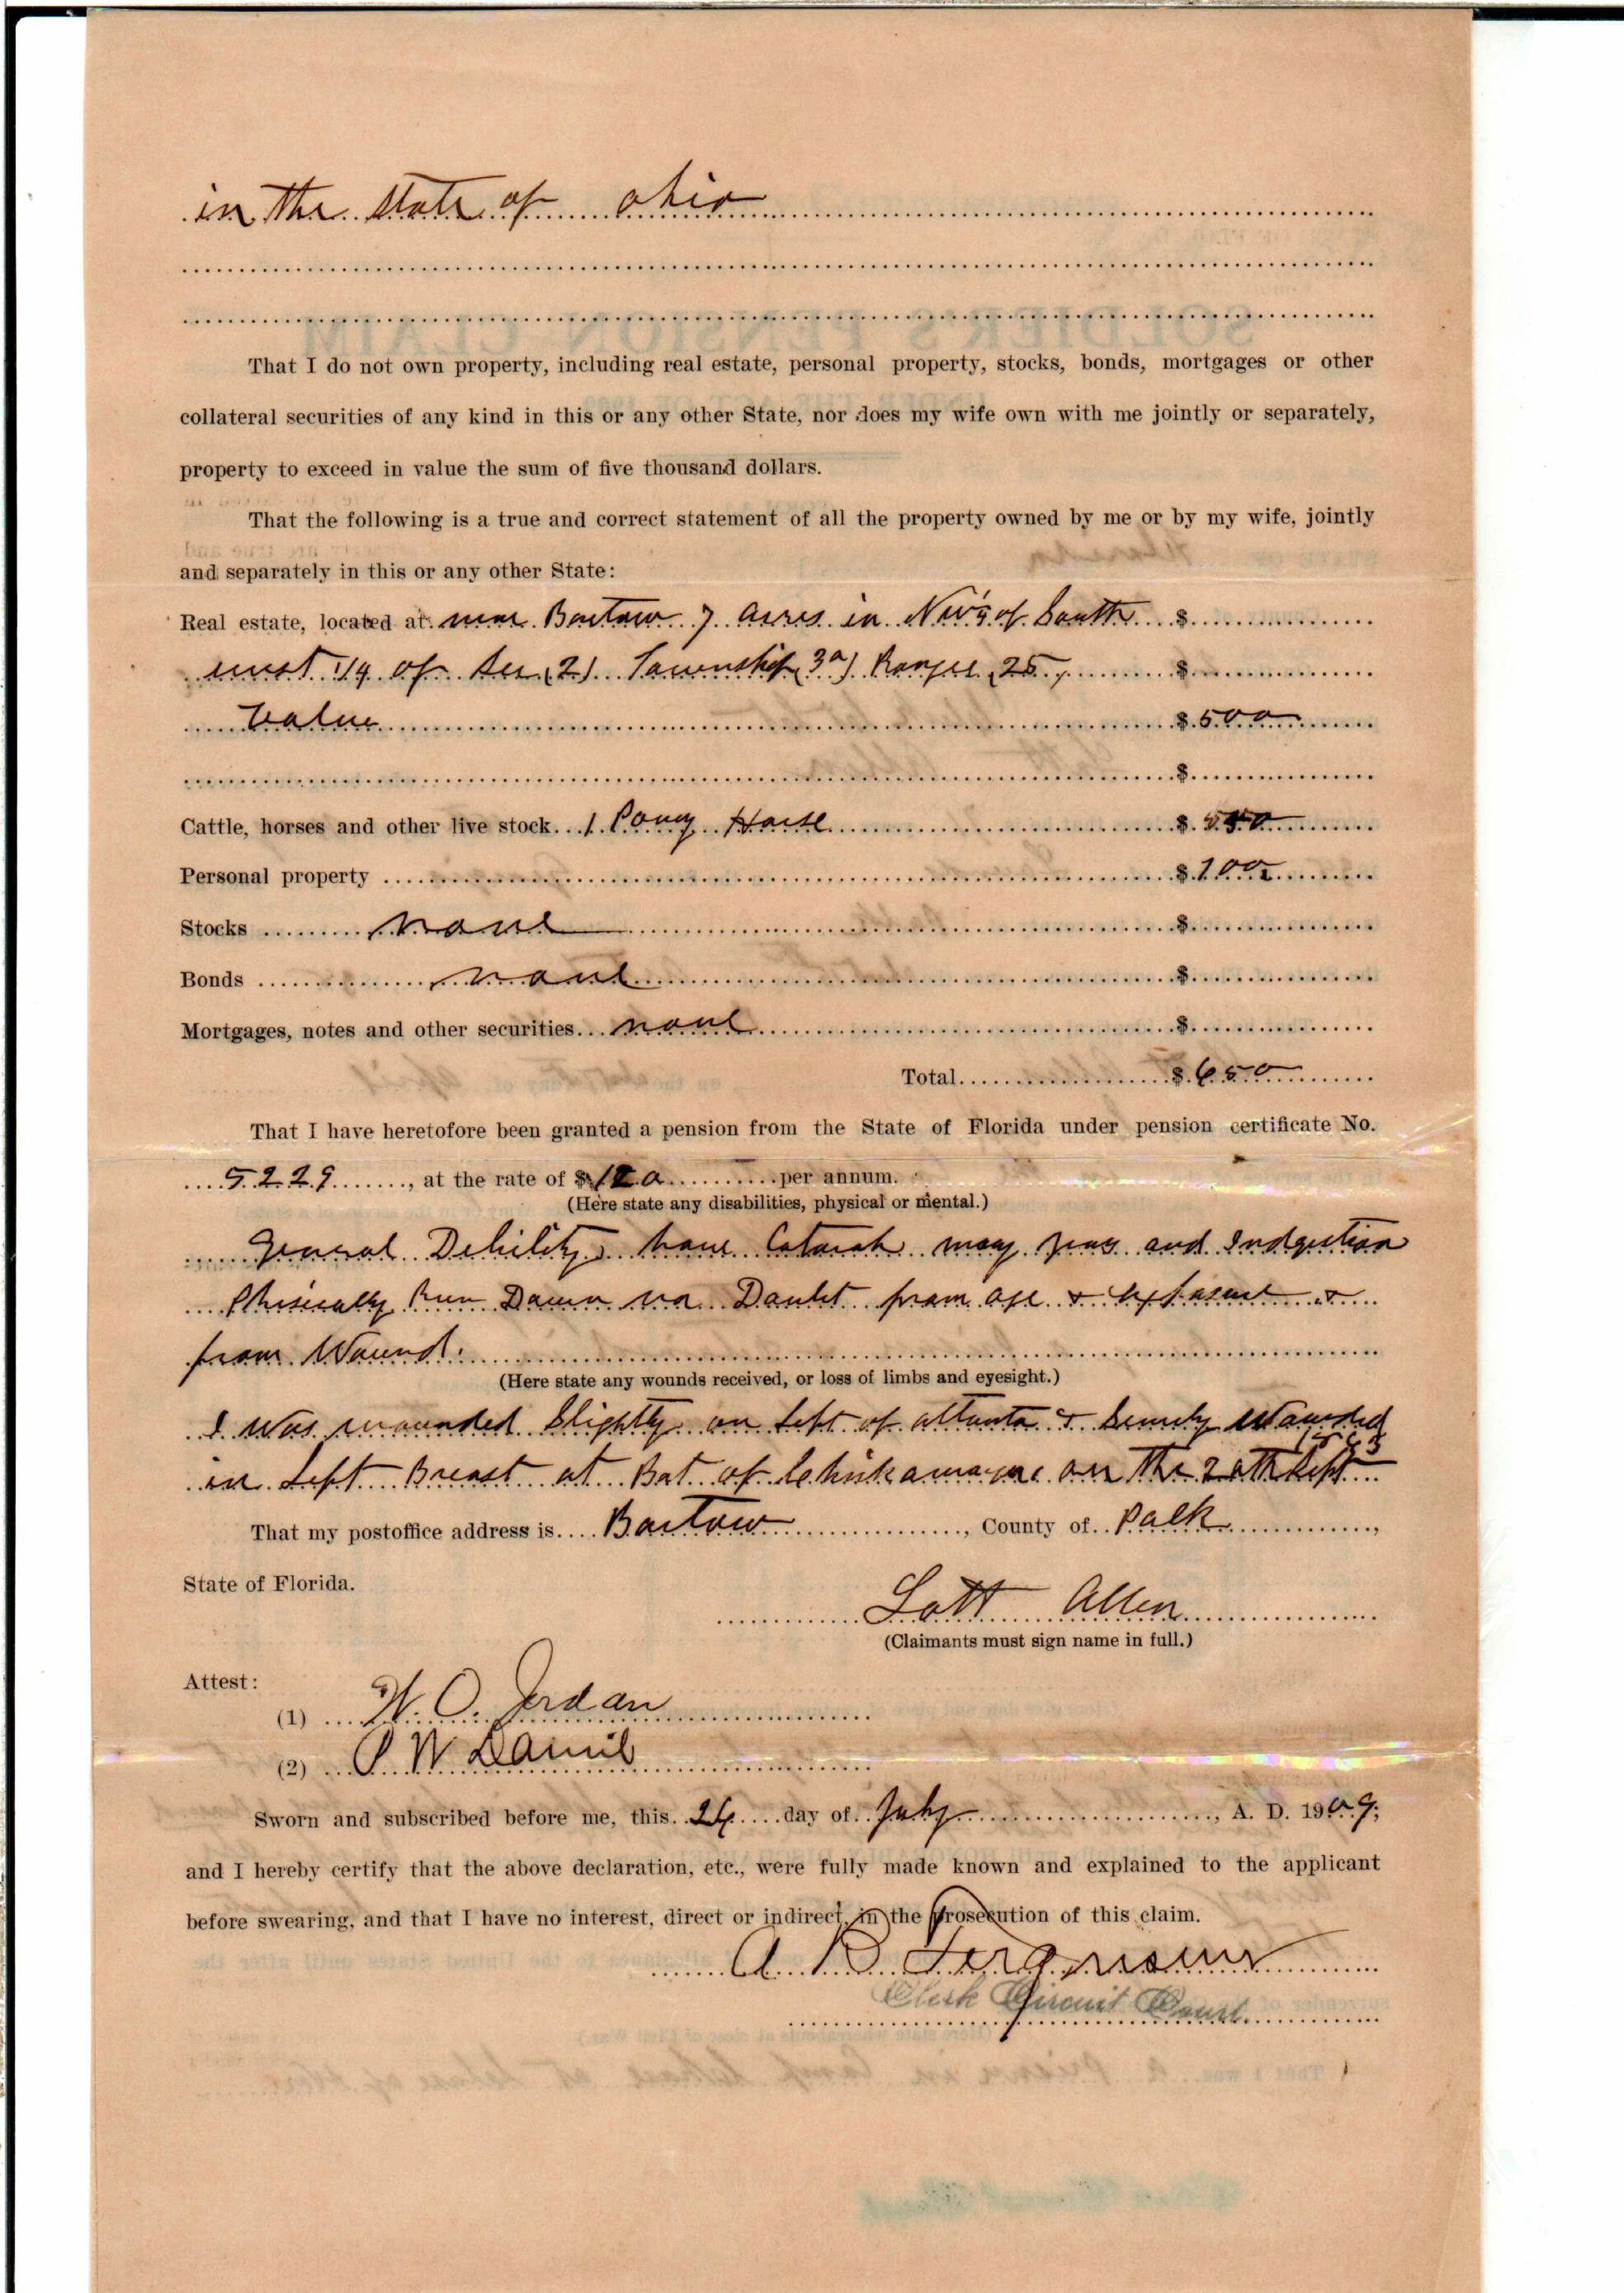 in the state of ohio
That I do not own property, including real estate, personal property, stocks, bonds, mortgages or other
collateral securities of any kind in this or any other State, nor does my wife own with me jointly or separately,
property to exceed in value the sum of five thousand dollars.
That the following is a true and correct statement of all the property owned by me or by my wife, jointly
and separately in this or any other State:
Real estate, located at near Bartow 7 acres in of South $
west 1/4 of Sec (21) Township (30) Range (25) $
Value $ 500
$
Cattle, horses and other live stock 1 Pony Horse $ 50
Personal property $ 100
Stocks none $
Bonds none $
Mortgages, notes and other securities none $
Total $ 650
That I have heretofore been granted a pension from the State of Florida under pension certificate No.
5229, at the rate of $ 120 per annum.
(Here state any disabilities, physical or mental.)
General Debility have Catarah many years and Indgestion
Phisically Run Down no Doubt from age & Exposure &
from Wound.
(Here state any wounds received, or loss of limbs and eyesight.)
I was wounded Slightly on left of atlanta & Severely Wounded
in Left Breast at Bat of Chickamauga on the 20th Sept 1863
That my postoffice address is Bartow, County of Polk,
State of Florida.
Lott Allen
(Claimants must sign name in full.)
Attest:
(1) W. O. Jordan
(2) P W Daniel
Sworn and subscribed before me, this 26 day of July, A. D. 1909;
and I hereby certify that the above declaration, etc., were fully made known and explained to the applicant
before swearing, and that I have no interest, direct or indirect, in the prosecution of this claim.
A B Ferguson
Clerk Circuit Court